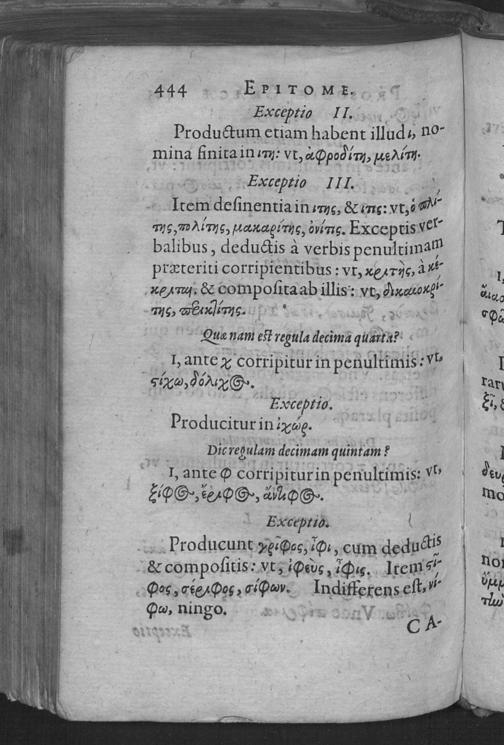 444 EPITOME.
Exceptio II.
Productum etiam habent illud ι, no-
mina finita in ιτη: vt, ἀφροδίτη, μελίτη.
Exceptio III.
Item desinentia in ιτης, & ιτις: vt, ὁπλί-
της, πολίτης, μακαρίτης, ὀνίτις. Exceptis ver-
balibus, deductis à verbis penultimam
præteriti corripientibus: vt, κριτὴς, à κέ-
κριται. & composita ab illis: vt, δικαιοκρί-
της,
Quæ nam est regula decima quarta?
I, ante χ corripitur in penultimis: vt,
στίχω, δόλιχος.
Exceptio.
Producitur in ἰχώρ.
Dic regulam decimam quintam?
I, ante φ corripitur in penultimis: vt,
ξίφος, ἔριφος, ἄντιφος.
Exceptio.
Producunt γρῖφος, ἶφι, cum deductis
& compositis: vt, ἰφεὺς, ἶφις. Item στῖ-
φος, σέριφος, σίφων. Indifferens est, νί-
φω, ningo.
CA-